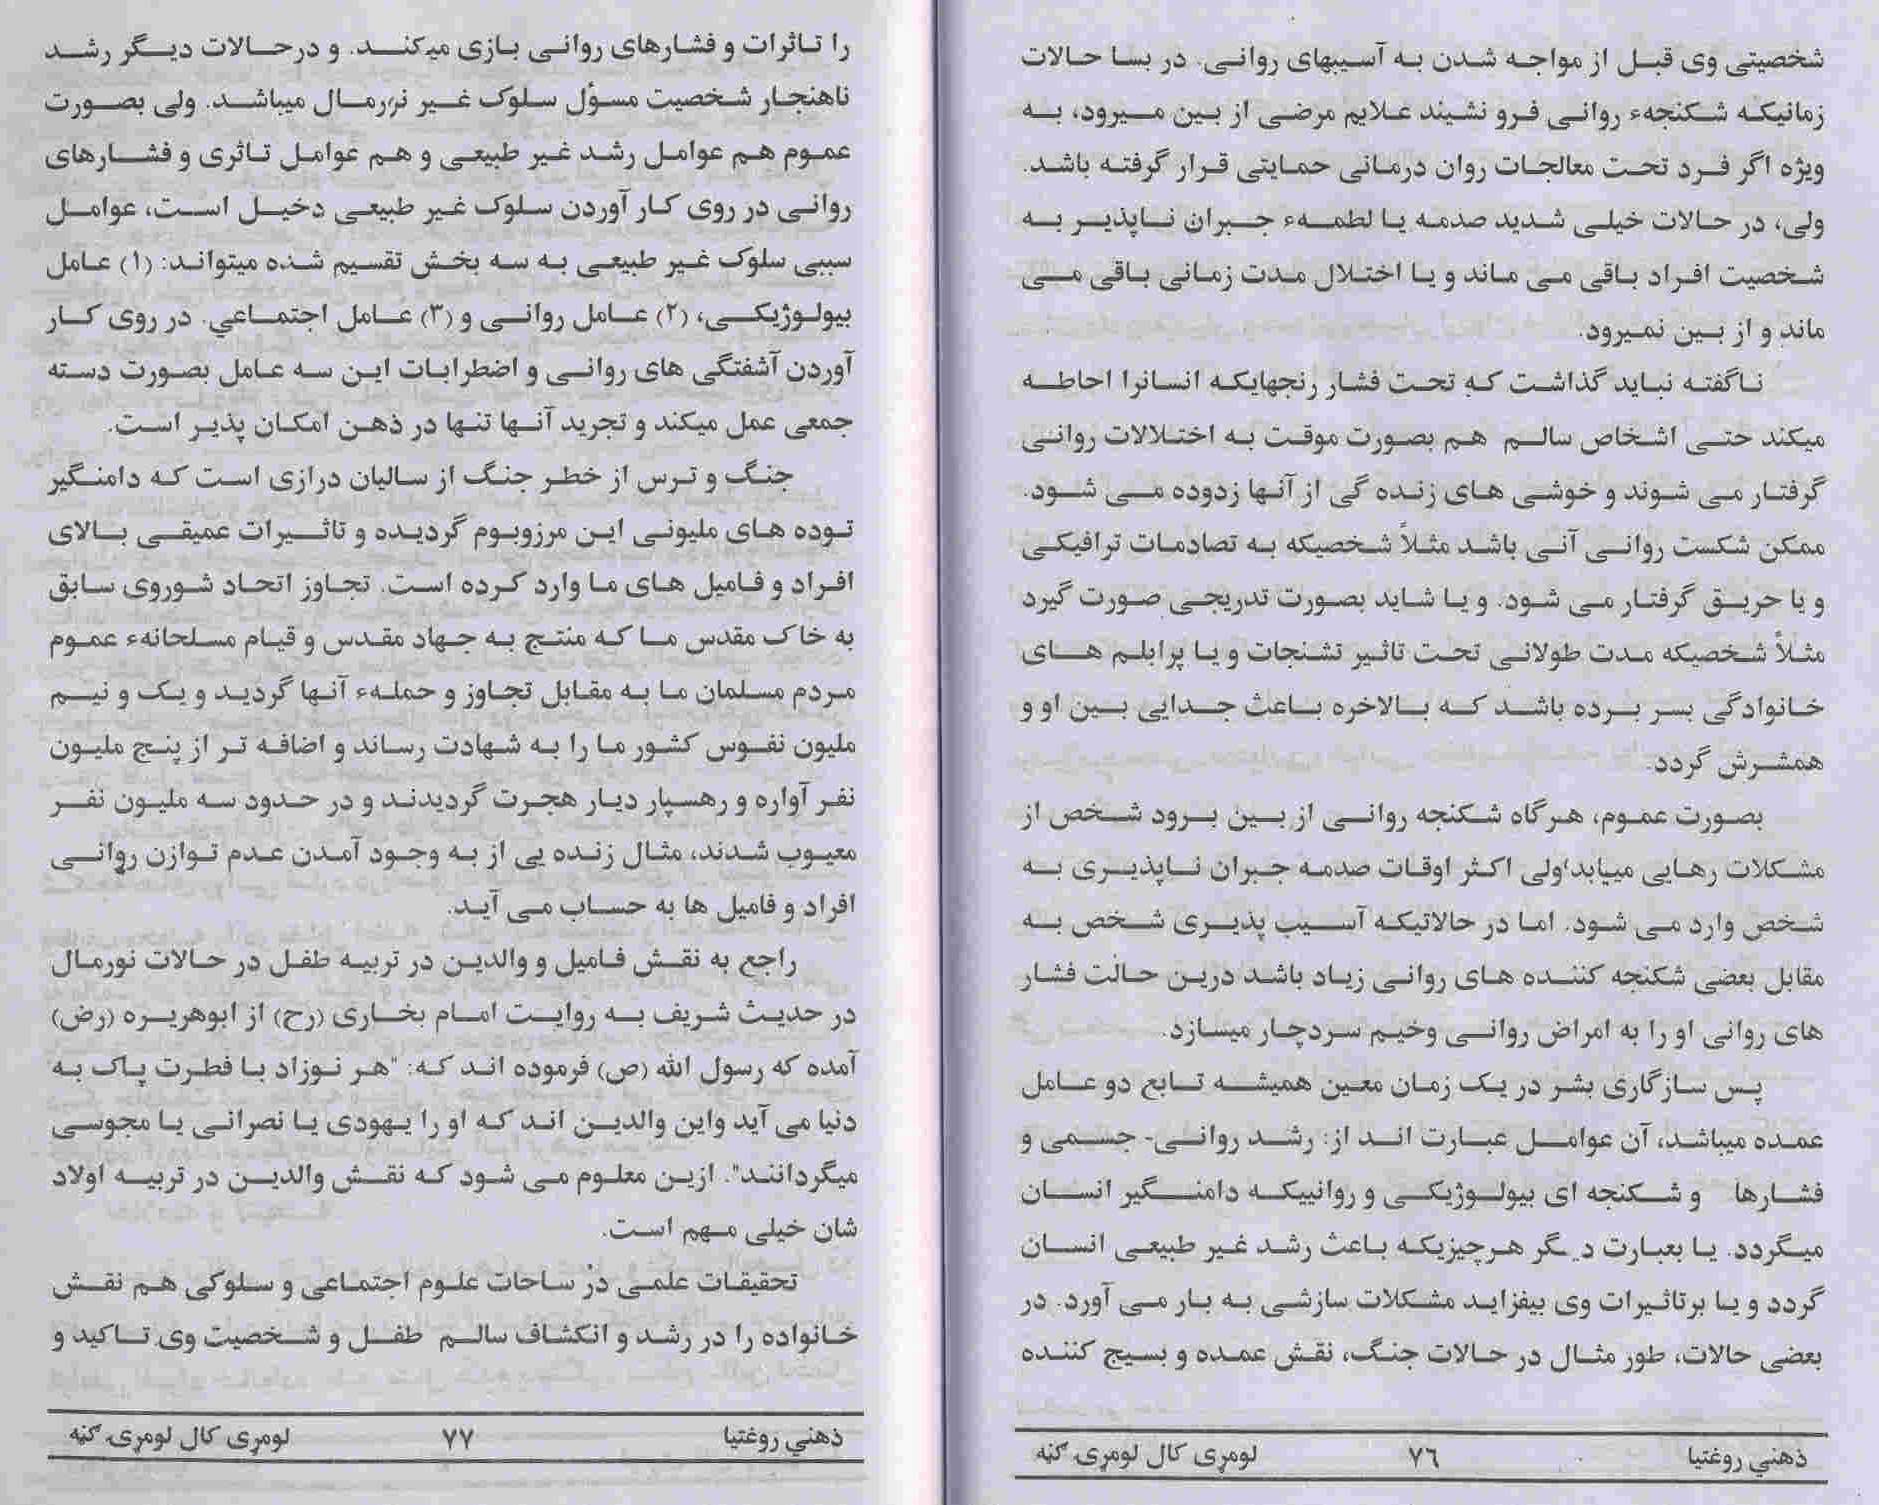 شخصیتی وی قبل از مواجه شدن به آسیبهای روانی. در بسا حالات
زمانیکه شکنجهء روانی فرو نشیند علایم مرضی از بین میرود، به
ویژه اگر فرد تحت معالجات روان درمانی حمایتی قرار گرفته باشد.
ولی، در حالات خیلی شدید صدمه یا لطمهء جبران ناپذیر به
شخصیت افراد باقی می ماند و یا اختلال مدت زمانی باقی می
ماند و از بین نمیرود.
ناگفته نباید گذاشت که تحت فشار رنجهایکه انسانرا احاطه
میکند حتی اشخاص سالم هم بصورت موقت به اختلالات روانی
گرفتار می شوند و خوشی های زنده گی از آنها زدوده می شود.
ممکن شکست روانی آنی باشد مثلاً شخصیکه به تصادمات ترافیکی
و یا حریق گرفتار می شود. و یا شاید بصورت تدریجی صورت گیرد
مثلاً شخصیکه مدت طولانی تحت تاثیر تشنجات و یا پرابلم های
خانوادگی بسر برده باشد که بالاخره باعث جدایی بین او و
همشرش گردد.
بصورت عموم، هرگاه شکنجه روانی از بین برود شخص از
مشکلات رهایی مییابد؛ولی اکثر اوقات صدمه جبران ناپذیری به
شخص وارد می شود. اما در حالاتیکه آسیب پذیری شخص به
مقابل بعضی شکنجه کننده های روانی زیاد باشد درین حالت فشار
های روانی او را به امراض روانی وخیم سردچار میسازد.
پس سازگاری بشر در یک زمان معین همیشه تابع دو عامل
عمده میباشد، آن عوامل عبارت اند از: رشد روانی- جسمی و
فشارها و شکنجه ای بیولوژیکی و روانییکه دامنگیر انسان
میگردد. یا بعبارت دیگر هرچیزیکه باعث رشد غیر طبیعی انسان
گردد و یا برتاثیرات وی بیفزاید مشکلات سازشی به بار می آورد. در
بعضی حالات، طور مثال در حالات جنگ، نقش عمده و بسیج کننده
ذهني روغتیا ۷٦ لومړی کال لومړۍ ګڼه
را تاثرات و فشارهای روانی بازی میکند. و درحالات دیگر رشد
ناهنجار شخصیت مسؤل سلوک غیر نورمال میباشد. ولی بصورت
عموم هم عوامل رشد غیر طبیعی و هم عوامل تاثری و فشارهای
روانی در روی کار آوردن سلوک غیر طبیعی دخیل است، عوامل
سببی سلوک غیر طبیعی به سه بخش تقسیم شده میتواند: (۱) عامل
بیولوژیکی، (۲) عامل روانی و (۳) عامل اجتماعي. در روی کار
آوردن آشفتگی های روانی و اضطرابات این سه عامل بصورت دسته
جمعی عمل میکند و تجرید آنها تنها در ذهن امکان پذیر است.
جنگ و ترس از خطر جنگ از سالیان درازی است که دامنگیر
توده های ملیونی این مرزوبوم گردیده و تاثیرات عمیقی بالای
افراد و فامیل های ما وارد کرده است. تجاوز اتحاد شوروی سابق
به خاک مقدس ما که منتج به جهاد مقدس و قیام مسلحانهء عموم
مردم مسلمان ما به مقابل تجاوز و حملهء آنها گردید و یک و نیم
ملیون نفوس کشور ما را به شهادت رساند و اضافه تر از پنج ملیون
نفر آواره و رهسپار دیار هجرت گردیدند و در حدود سه ملیون نفر
معیوب شدند، مثال زنده یی از به وجود آمدن عدم توازن روانی
افراد و فامیل ها به حساب می آید.
راجع به نقش فامیل و والدین در تربیه طفل در حالات نورمال
در حدیث شریف به روایت امام بخاری (رح) از ابوهریره (رض)
آمده که رسول الله (ص) فرموده اند که: "هر نوزاد با فطرت پاک به
دنیا می آید واین والدین اند که او را یهودی یا نصرانی یا مجوسی
میگردانند". ازین معلوم می شود که نقش والدین در تربیه اولاد
شان خیلی مهم است.
تحقیقات علمی در ساحات علوم اجتماعی و سلوکی هم نقش
خانواده را در رشد و انکشاف سالم طفل و شخصیت وی تاکید و
ذهني روغتیا ۷۷ لومړی کال لومړۍ ګڼه